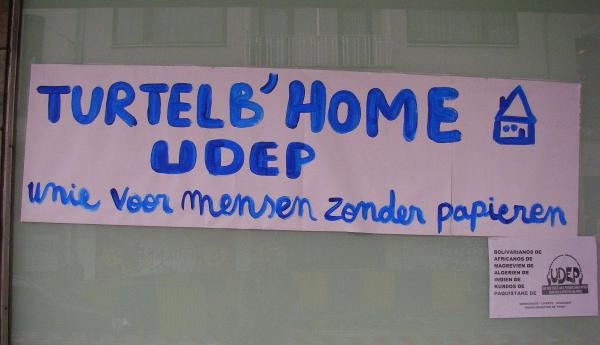 TURTELB'HOME
UDEP
unie voor mensen zonder papieren
BOLIVARIANOS DE
AFRICANOS DE
MAGREVIEN DE
ALGERIEN DE
INDIEN DE
KURDOS DE
PAQUISTANE DE
UDEP